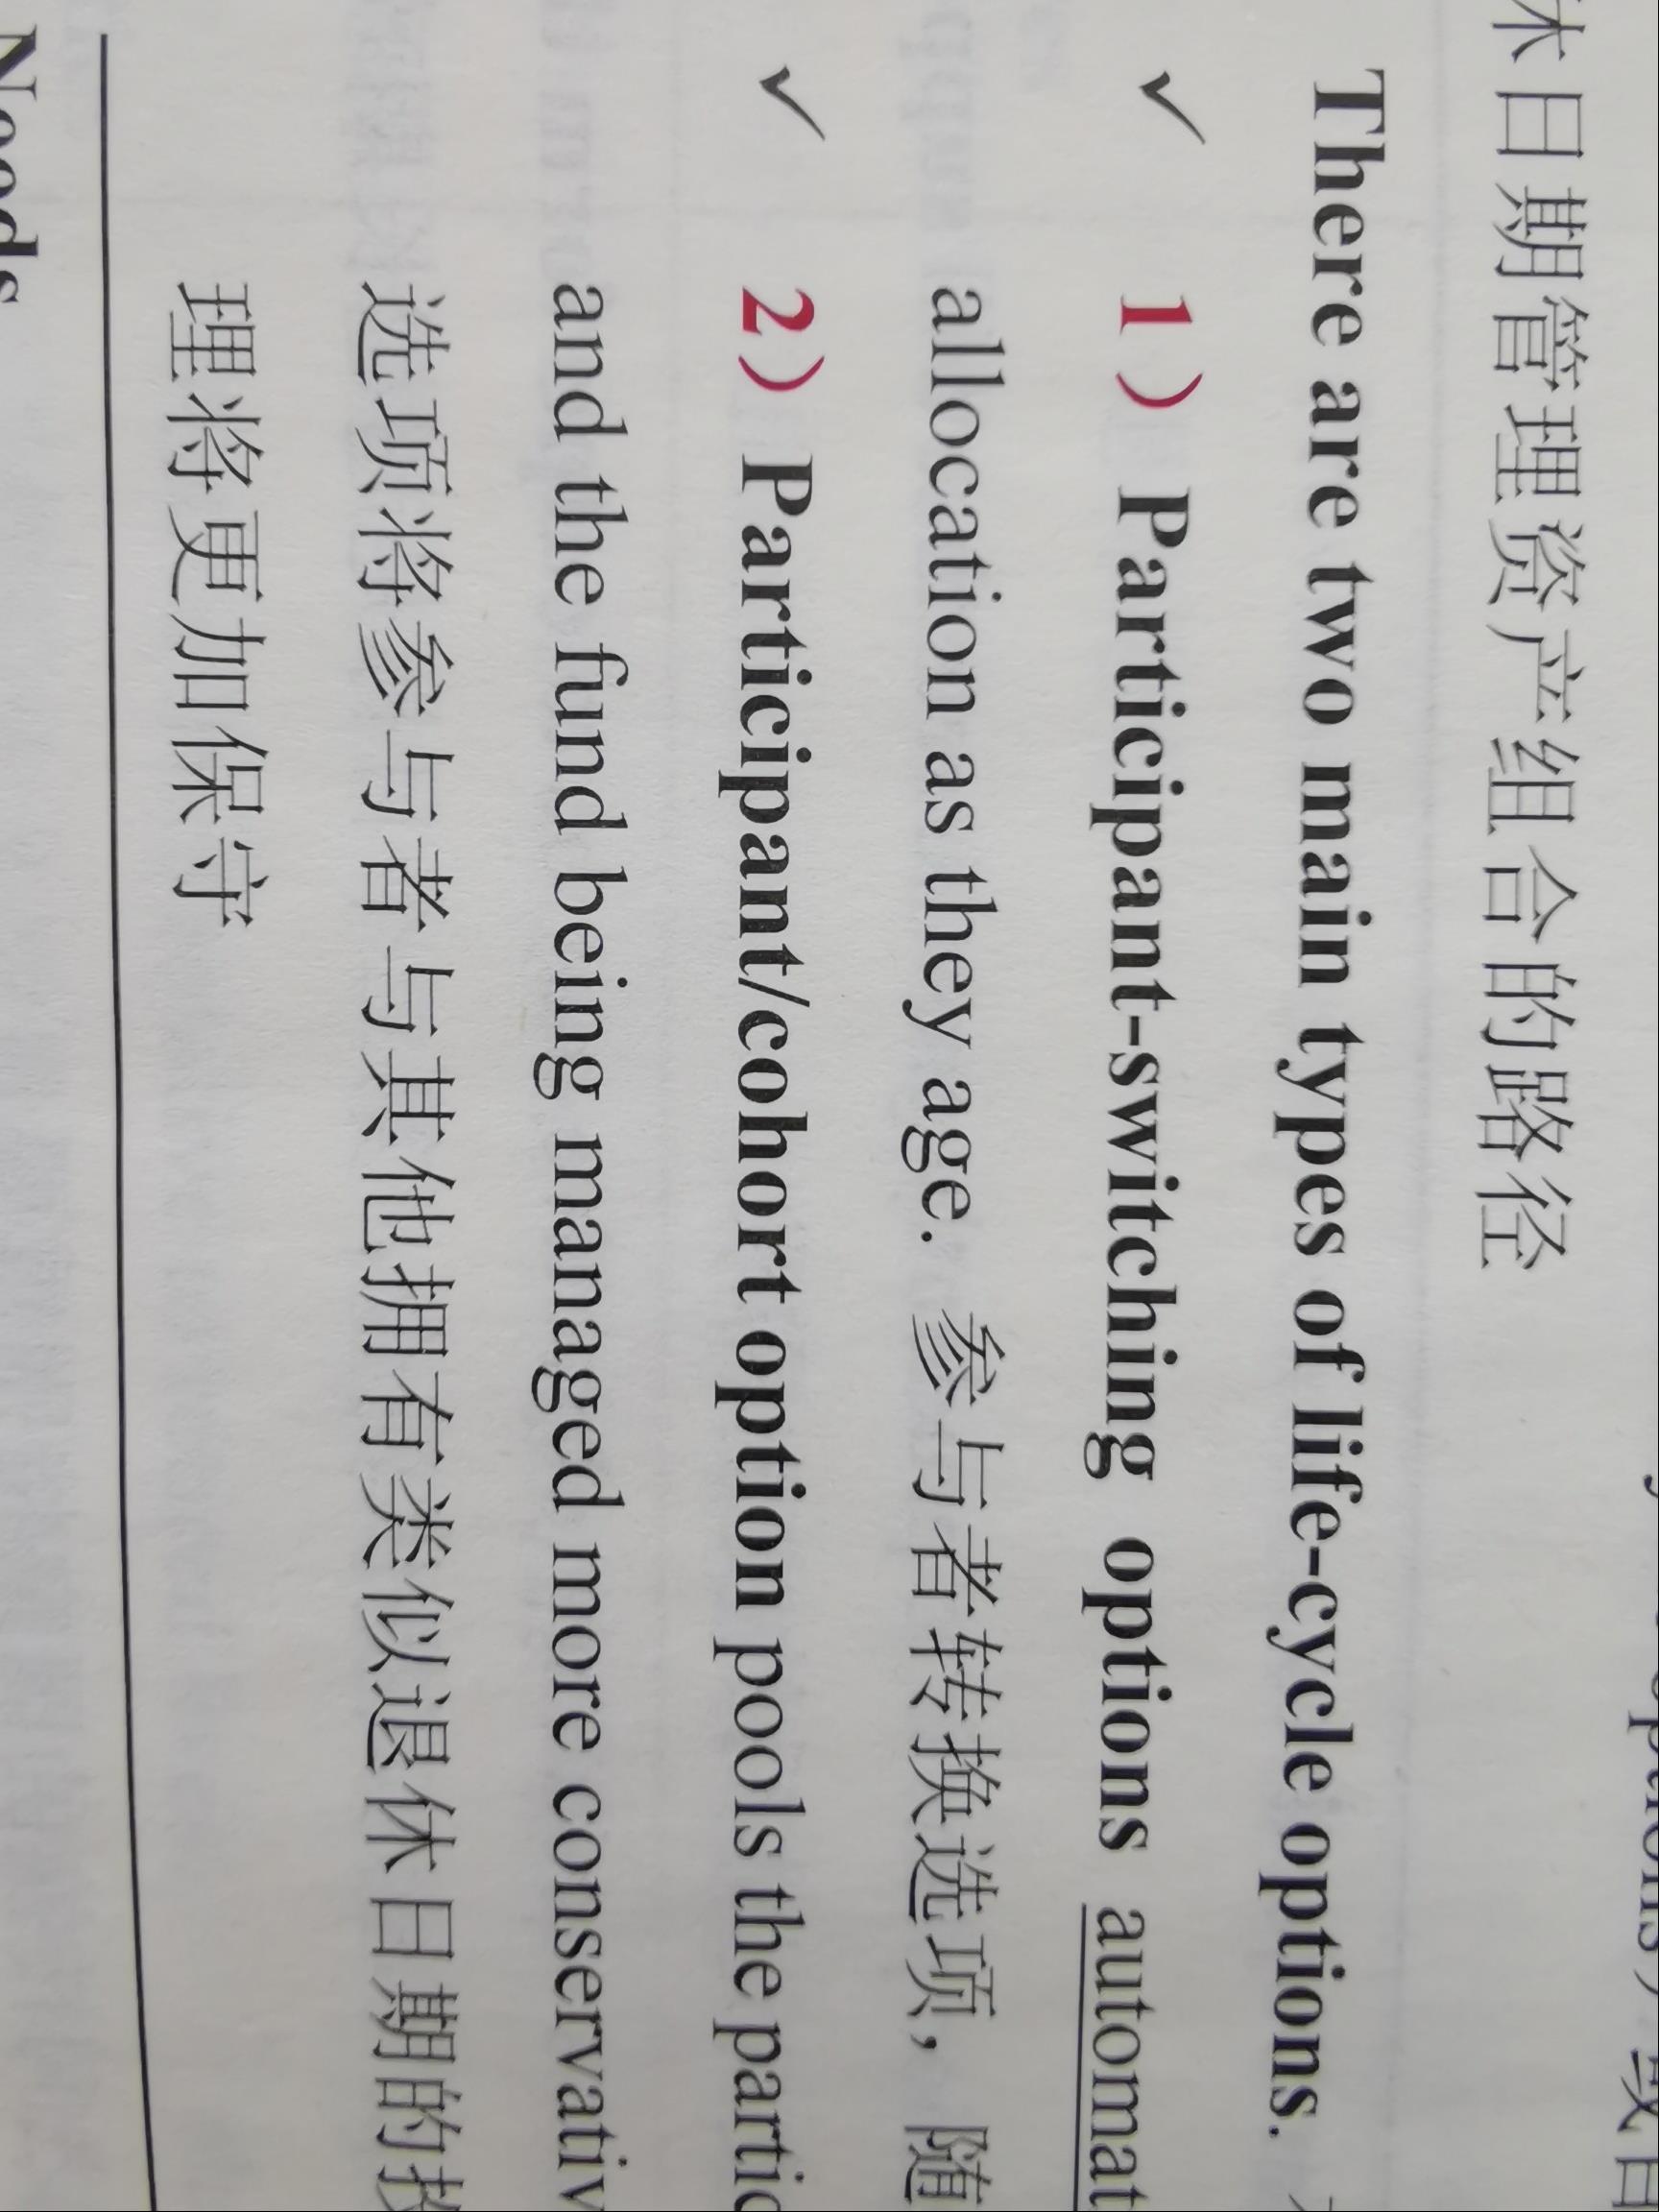 休日期管理资产组合的路径
There are two main types of life-cycle options.
✓ 1） Participant-switching options automat
allocation as they age. 参与者转换选项，随
✓ 2） Participant/cohort option pools the partic
and the fund being managed more conservativ
选项将参与者与其他拥有类似退休日期的投
理将更加保守
Needs